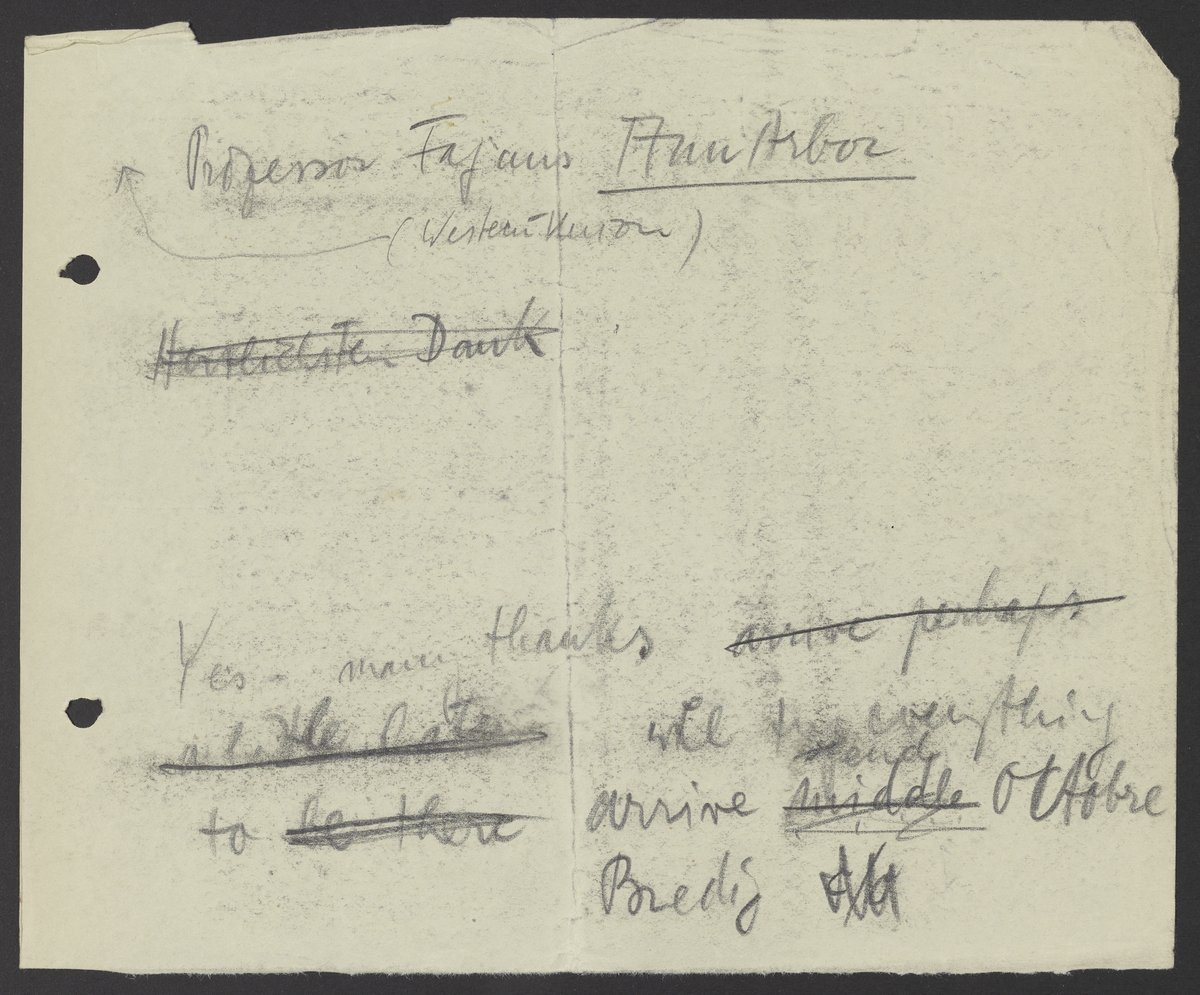 Professor Fajans Ann Arbor
(Western Union)
Herzlichsten Dank
Yes many thanks arrive perhaps
a little later will try everything
to be there arrive middle end Octobre
Bredig